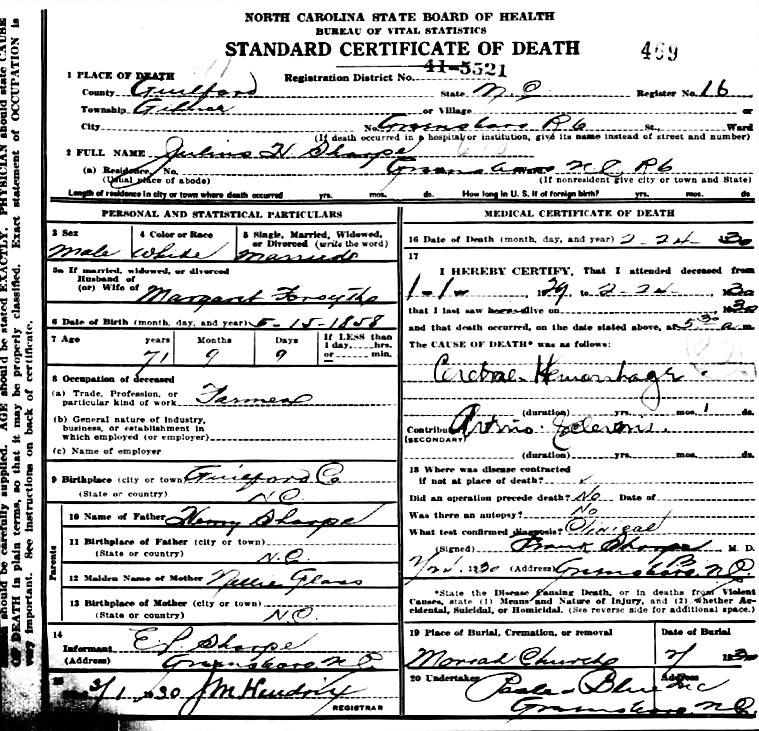 NORTH CAROLINA STATE BOARD OF HEALTH
BUREAU OF VITAL STATISTICS
STANDARD CERTIFICATE OF DEATH
469
41-5521
1 PLACE OF DEATH Registration District No.
County Guilford State N C Register No. 16
Township Gilmer or Village or
City No. Greensboro R6 St., Ward
(If death occurred in a hospital or institution, give its name instead of street and number)
2 FULL NAME Julius H Sharpe
(a) Residence. No. Greensboro N C, R6
(Usual place of abode) (If nonresident give city or town and State)
Length of residence in city or town where death occurred yrs. mos. ds. How long in U. S. if of foreign birth? yrs. mos. ds.
PERSONAL AND STATISTICAL PARTICULARS
3 Sex 4 Color or Race 5 Single, Married, Widowed,
or Divorced (write the word)
Male White Married
5a If married, widowed, or divorced
Husband of
(or) Wife of Margaret Forsythe
6 Date of Birth (month, day, and year) 5-15-1858
7 Age years Months Days If LESS than
1 day, hrs.
or min.
71 9 9
8 Occupation of deceased
(a) Trade, Profession, or
particular kind of work Farmer
(b) General nature of industry,
business, or establishment in
which employed (or employer)
(c) Name of employer
9 Birthplace (city or town) Guilford Co
(State or country) N.C.
Parents
10 Name of Father Henry Sharpe
11 Birthplace of Father (city or town)
(State or country) N.C.
12 Maiden Name of Mother Nellie Glass
13 Birthplace of Mother (city or town)
(State or country) N.C.
14
Informant E P Sharpe
(Address) Greensboro N.C.
15
3/1 1930 J M Hendrix
REGISTRAR
MEDICAL CERTIFICATE OF DEATH
16 Date of Death (month, day, and year) 2-24- 30
17
I HEREBY CERTIFY, That I attended deceased from
1-1- , 1929, to 2-24- , 1930
that I last saw alive on 1930
and that death occurred, on the date stated above, at 5 30 a.m.
The CAUSE OF DEATH* was as follows:
Cerebral Hemorrhage
(duration) yrs. mos. 1 ds.
Contributory Arterio-Sclerosis
(SECONDARY)
(duration) yrs. mos. ds.
18 Where was disease contracted
if not at place of death?
Did an operation precede death? No Date of
Was there an autopsy? No
What test confirmed diagnosis? Clinical
(Signed) Frank Sharpe M. D.
1930 (Address) Greensboro, N.C.
*State the Disease Causing Death, or in deaths from Violent
Causes, state (1) Means and Nature of Injury, and (2) whether Ac-
cidental, Suicidal, or Homicidal. (See reverse side for additional space.)
19 Place of Burial, Cremation, or removal Date of Burial
Moriah Church 2/ 1930
20 Undertaker Address
Poole & Blue Inc
Greensboro, N.C.
should be carefully supplied. AGE should be stated EXACTLY. PHYSICIAN should state CAUSE
OF DEATH in plain terms, so that it may be properly classified. Exact statement of OCCUPATION is
very important. See instructions on back of certificate.